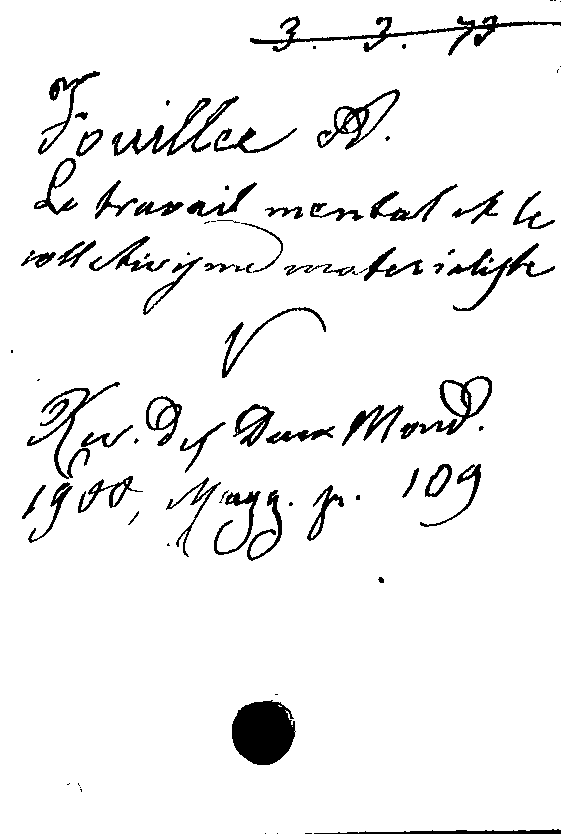 3. 3. 73
Fouillee A.
Le travail mental et le
collettivisme materialiste
V
Rev. des Deux Mond.
1900, Magg. p. 109